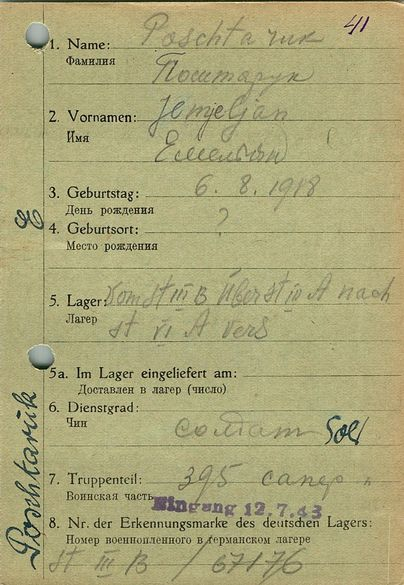 41
1. Name: Poschtaruk
Фамилия Поштарук
2. Vornamen: Jemeljan
Имя Емельян
3. Geburtstag: 6. 8. 1918
День рождения
4. Geburtsort: ?
Место рождения
5. Lager: Kom St III B Überst IV A nach
Лагер St VI A vers
5a. Im Lager eingeliefert am:
Доставлен в лагер (число)
6. Dienstgrad:
Чин солдат Sol
7. Truppenteil: 395 сапер п
Воинская часть
Eingang 12.7.43
8. Nr. der Erkennungsmarke des deutschen Lagers:
Номер военнопленного в германском лагере
St III B / 67176
Poschtaruk